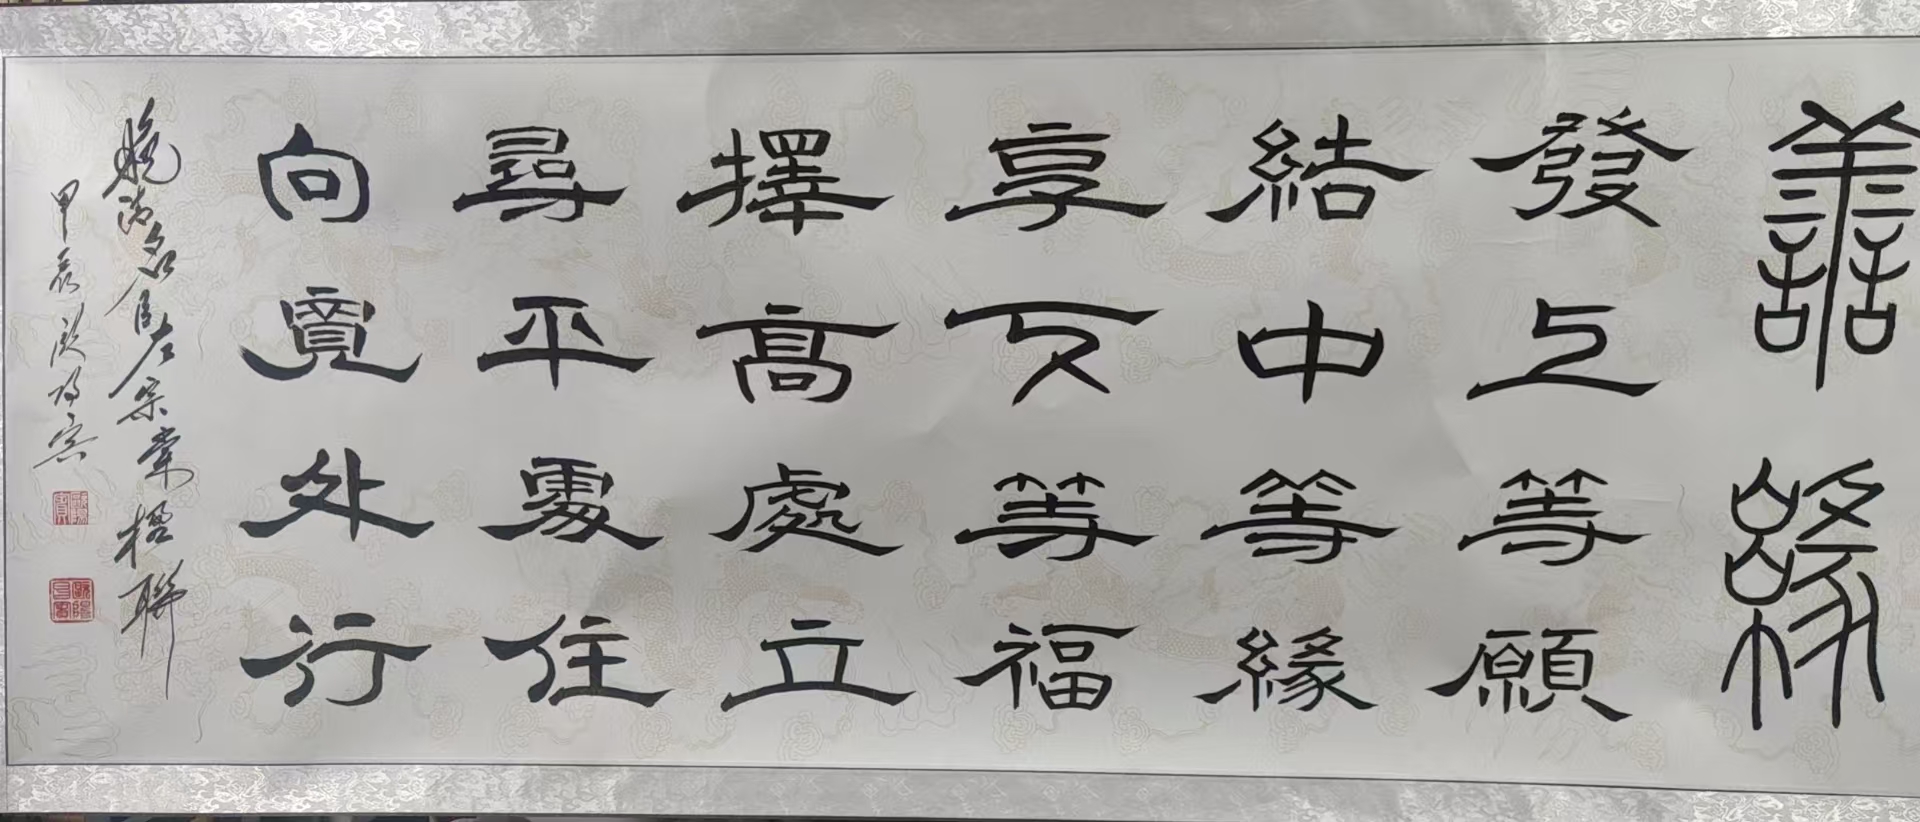 善緣
發上等願
結中等緣
享下等福
擇高處立
尋平處住
向寬处行
晚清名臣左宗棠楹聯
甲辰